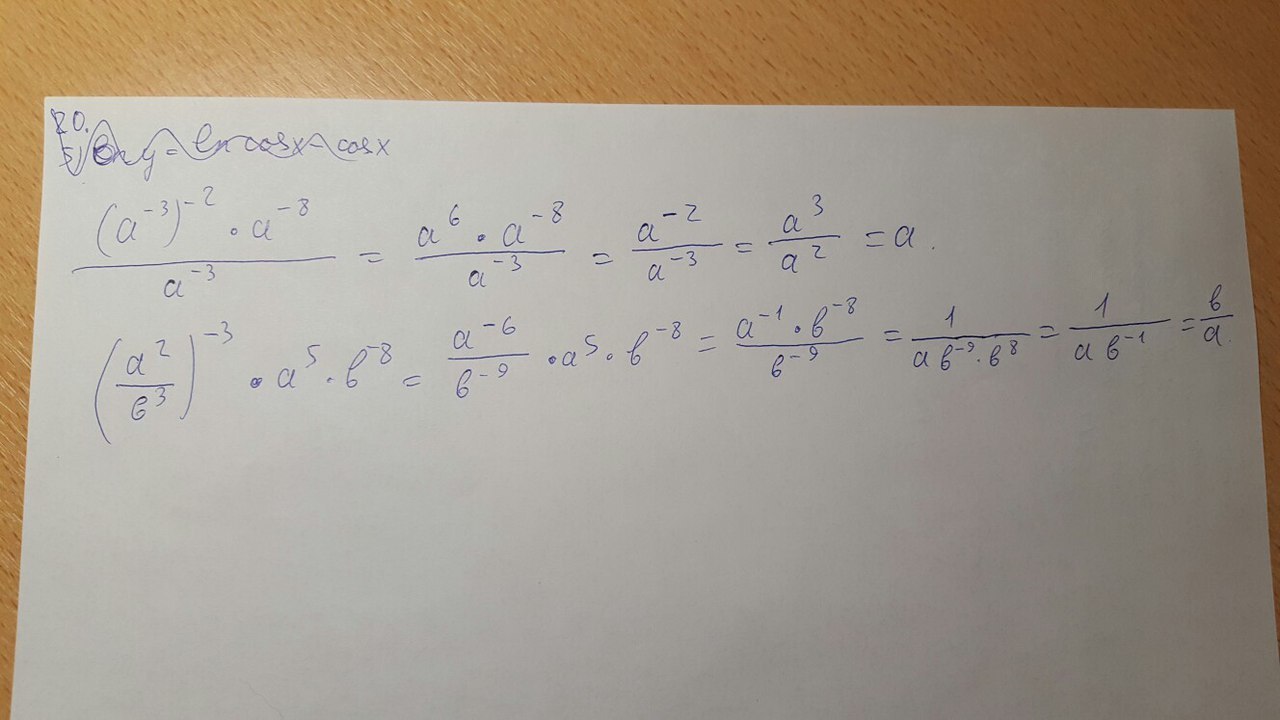 20.
5) ln y = ln cosx cosx
(a^{-3})^{-2} · a^{-8} / a^{-3} = a^6 · a^{-8} / a^{-3} = a^{-2} / a^{-3} = a^3 / a^2 = a.
(a^2 / в^3)^{-3} · a^5 · в^{-8} = a^{-6} / в^{-9} · a^5 · в^{-8} = a^{-1} · в^{-8} / в^{-9} = 1 / a в^{-9} · в^8 = 1 / a в^{-1} = в / a.